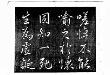 悼不能
喻之於懷
固知一死
生為虛誕